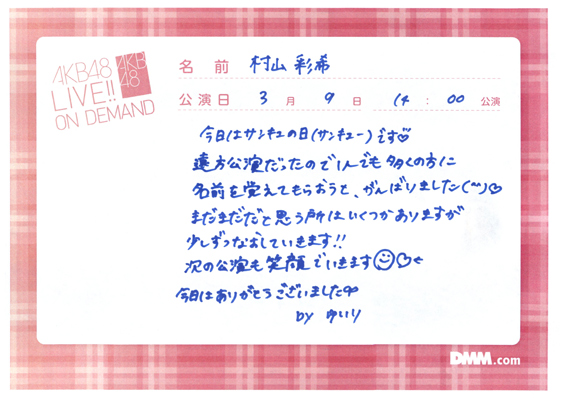 AKB48
LIVE!!
ON DEMAND
AKB
48
名前 村山彩希
公演日 3月9日 14:00公演
今日はサンキュの日(サンキュー)です♡
遠方公演だったので1人でも多くの方に
名前を覚えてもらおうと、がんばりました(^^)♡
まだまだだと思う所はいくつかありますが
少しずつなおしていきます!!
次の公演も笑顔でいきます☺♡←
今日はありがとうございました
by ゆいり
DMM.com